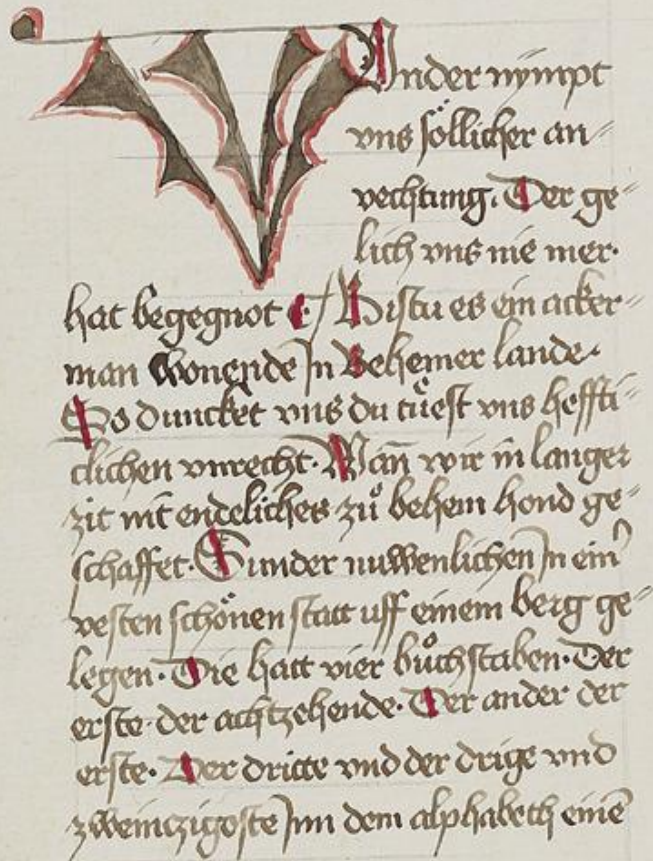 WUnder nÿmpt
vns söllicher an⸗
vechtung. Der ge⸗
lich vns nie mer.
hat begegnot Bistu es ein acker⸗
man wonende Jn Behemer lande.
So duncket vns du tuͤest vns heffti⸗
clichen vnrecht. Wan̄ wir in langer
zit nit endeliches zuͦ behem hond ge⸗
schaffet. Sunder nuwenlichen Jn ein̓
vesten schönen statt uff einem berg ge⸗
legen. Die hatt vier buͦchstaben. Der
erste. der achtzehende. Der ander der
erste. Der dritte vnd der drige vnd
zweinczigoste Jnn dem alphabeth eine̅